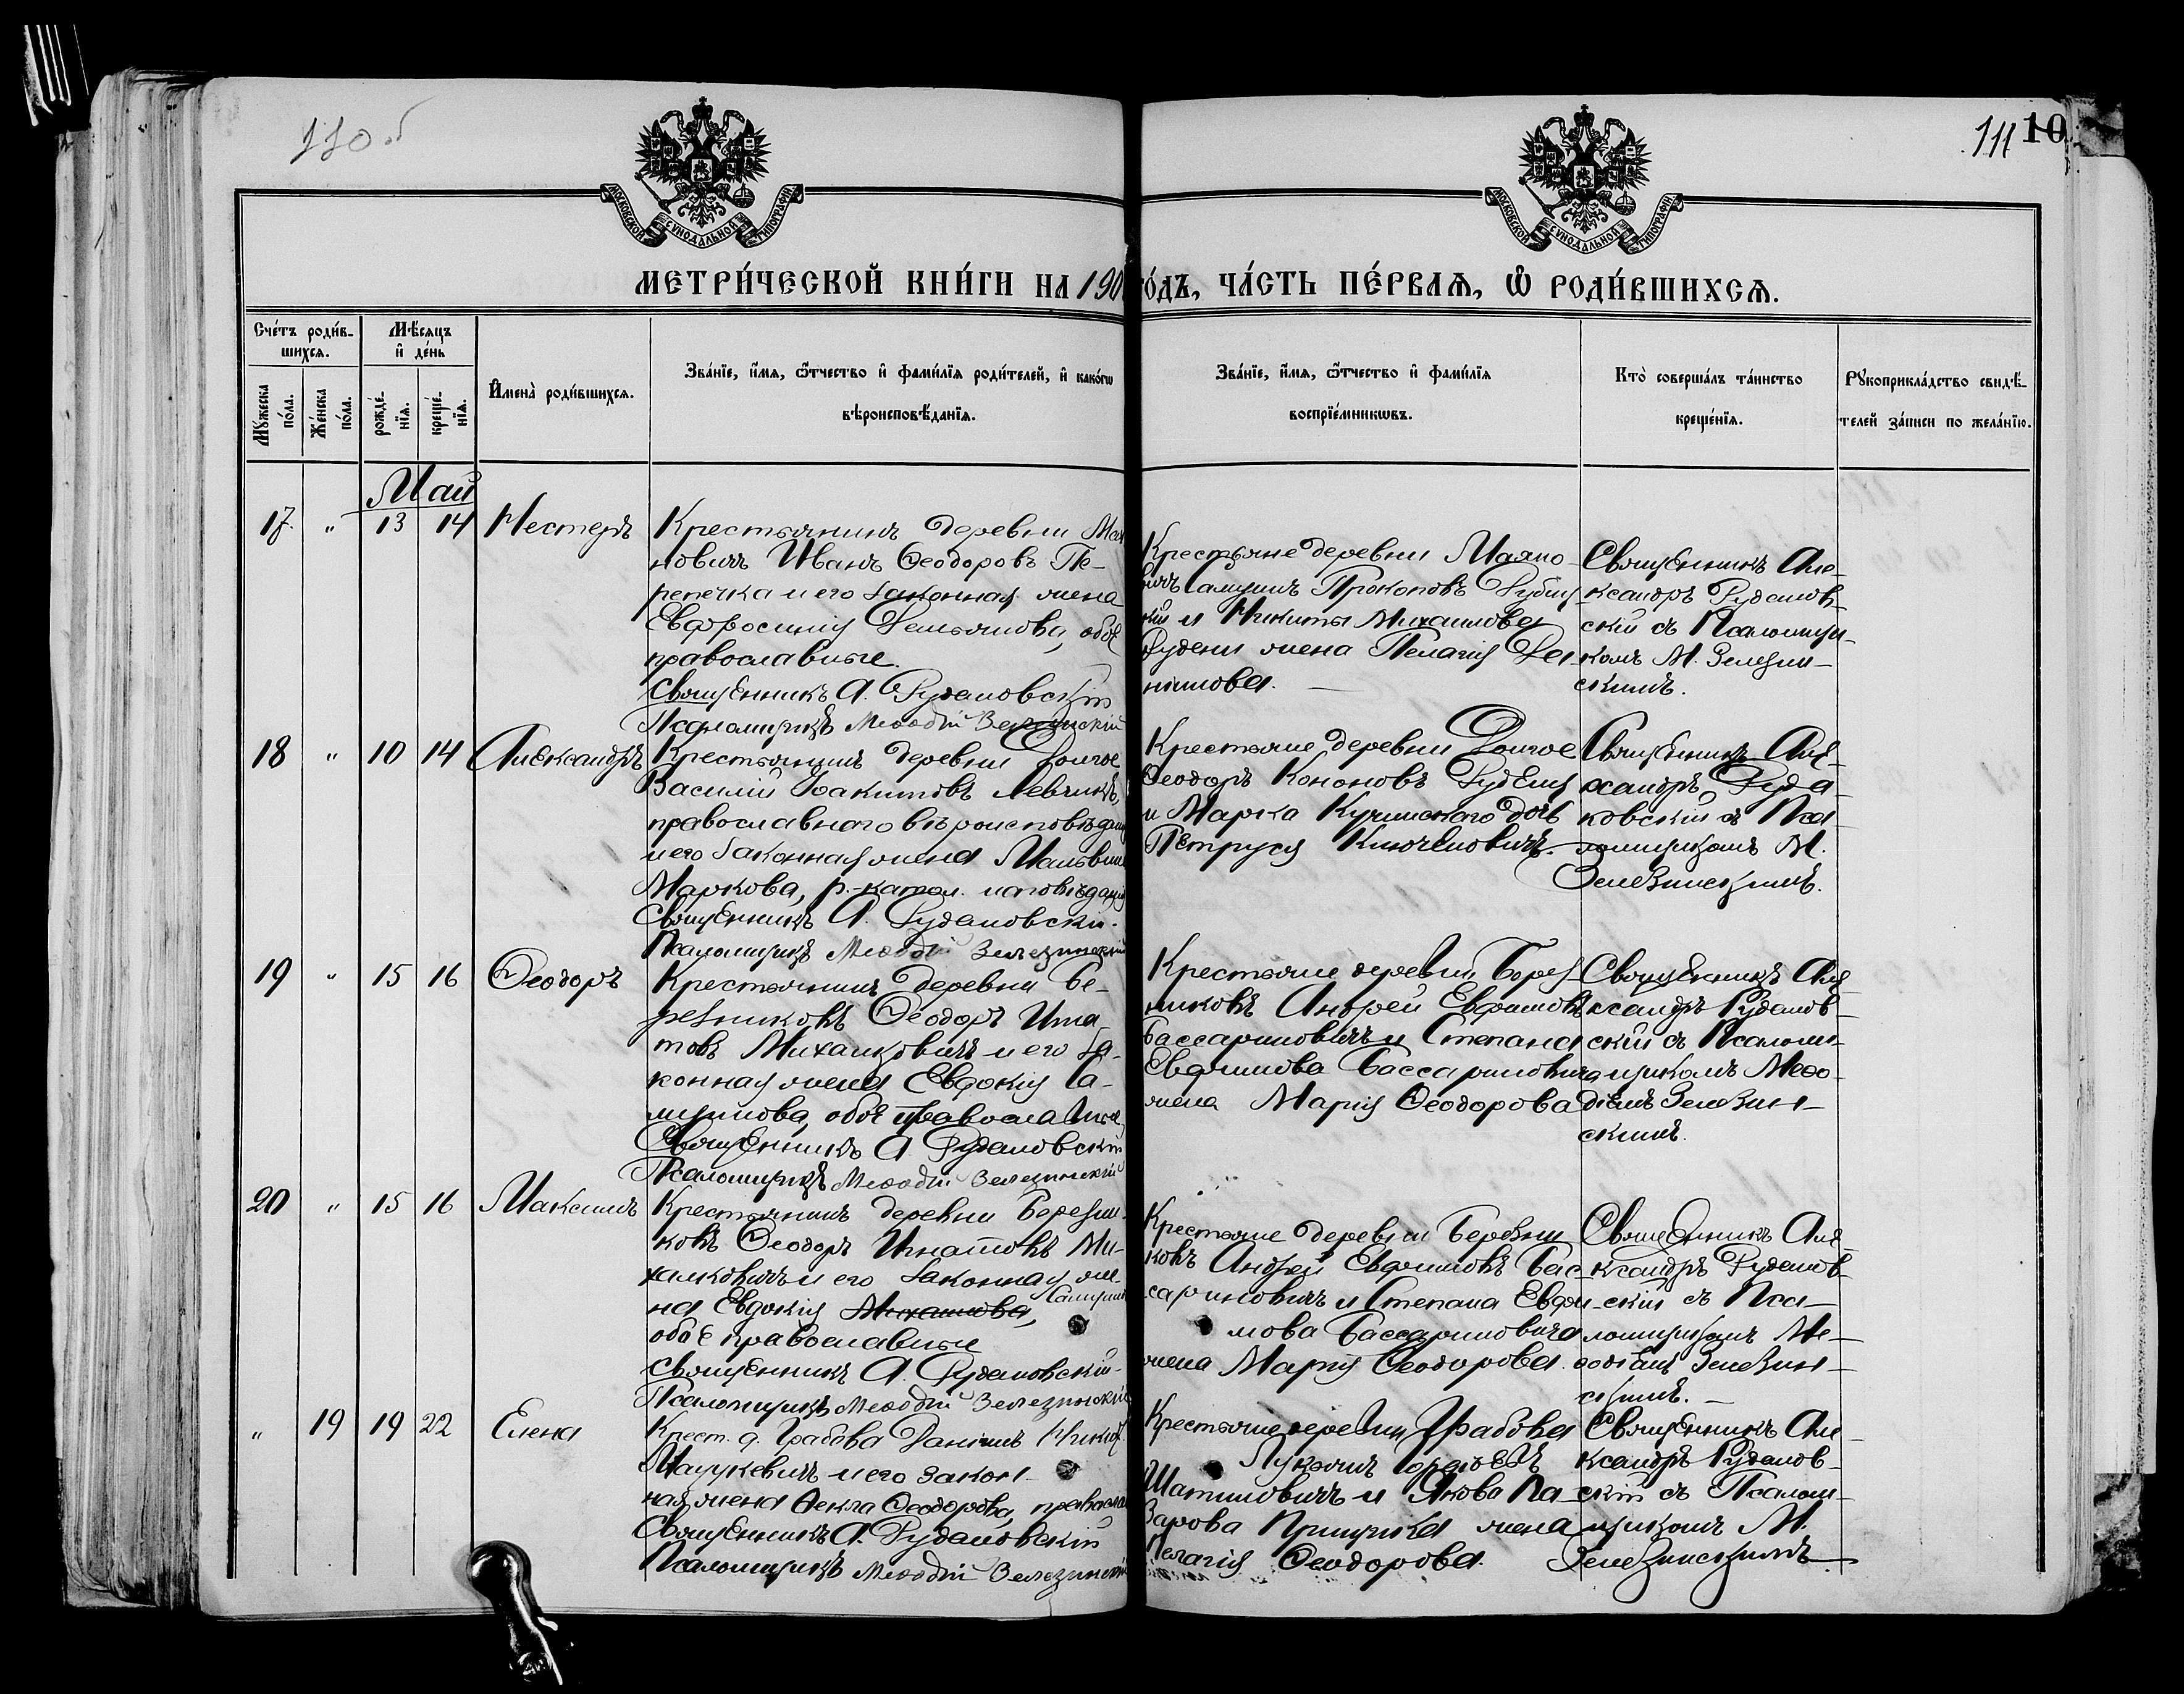 110об
111 10
МОСКОВСКОЙ СѴНОДАЛЬНОЙ ТИПОГРАФІИ
МОСКОВСКОЙ СѴНОДАЛЬНОЙ ТИПОГРАФІИ
МЕТРИ́ЧЕСКОЙ КНИ́ГИ НА 190 го́дъ, ЧА́СТЬ ПЕ́РВАѦ, Ѡ҆ РОДИ́ВШИХСѦ.
Сче́тъ роди́в-
шихсѧ.
Мѣ́сѧцъ
и҆ де́нь
Мꙋ́жеска по́ла.
Же́нска по́ла.
рожде́-
нїѧ.
креще́-
нїѧ.
И҆мена̀ роди́вшихсѧ.
Зва́нїе, и҆́мѧ, ѻ҆́тчество и҆ фами́лїѧ роди́телей, и҆ како́гѡ
вѣроисповѣ́данїѧ.
Зва́нїе, и҆́мѧ, ѻ҆́тчество и҆ фами́лїѧ
воспрїе́мникѡвъ.
Кто̀ соверша́лъ та́инство
креще́нїѧ.
Рꙋкоприкла́дство свидѣ́-
телей за́писи по жела́нїю.
Май
17. " 13 14 Нестеръ
Крестьянинъ деревни Мая
новичъ Иванъ Ѳеодоровъ Пе-
репечка и его законная жена
Евфросинія Демьянова, обое
православные.
Священникъ А. Рудаковскій
Псаломщикъ Меѳодій Зелезинскій
Крестьяне деревни Маяно-
вичъ Самуилъ Прокоповъ
и Никиты Михаилова
Рудени жена Пелагія Да-
ніилова.
Священникъ Але-
ксандръ Рудаков-
скій съ Псаломщи-
комъ М. Зелезин-
скимъ.
18 " 10 14 Александръ
Крестьянинъ деревни Долгое
Василій Іоакимовъ Левчикъ,
православнаго вѣроисповѣдан
и его законная жена
Маркова, р.-катол. исповѣданія
Священникъ А. Рудаковскій.
Псаломщикъ Меѳодій Зелезинскій
Крестьяне деревни Долгое
Ѳеодоръ Кононовъ Рудень
и Марка Кучинскаго дочь
Петруся
Священникъ Але-
ксандръ Руда-
ковскій съ Пса-
ломщикомъ М.
Зелезинскимъ.
19 " 15 16 Ѳеодоръ
Крестьянинъ деревни Бе-
резниковъ Ѳеодоръ Игна-
товъ Михалковичъ и его за-
конная жена Евдокія Са-
муилова, обое православные
Священникъ А. Рудаковскій
Псаломщикъ Меѳодій Зелезинскій
Крестьяне деревни Берез-
никовъ Андрей Евфимовъ
Бассариновичъ и Степана
Евфимова Бассариновича
жена Марія Ѳеодорова
Священникъ Але-
ксандръ Рудаков-
скій съ Псалом-
щикомъ Меѳо-
діемъ Зелезин-
скимъ.
20 " 15 16 Максимъ
Крестьянинъ деревни Березни-
ковъ Ѳеодоръ Игнатовъ Ми-
халковичъ и его законная же-
на Евдокія Михаилова, Самуил
обое православные
Священникъ А. Рудаковскій
Псаломщикъ Меѳодій Зелезинскій
Крестьяне деревни Березни
ковъ Андрей Евфимовъ Бас-
сариновичъ и Степана Евфи-
мова Бассариновича
жена Марія Ѳеодорова.
Священникъ Але-
ксандръ Рудаков-
скій съ Пса-
ломщикомъ Ме-
ѳодіемъ Зелезин-
скимъ.
" 19 19 22 Елена
Крест. д. Грабова Даніилъ
Мацукевичъ и его закон-
ная жена Ѳекла Ѳеодорова, православ
Священникъ А. Рудаковскій
Псаломщикъ Меѳодій Зелезинскій
Крестьяне деревни Грабова
Лукьянъ
Шатиловичъ и Якова Ла-
зарова жена
Пелагія Ѳеодорова.
Священникъ Але-
ксандръ Рудаков-
скій съ Псалом-
щикомъ М.
Зелезинскимъ